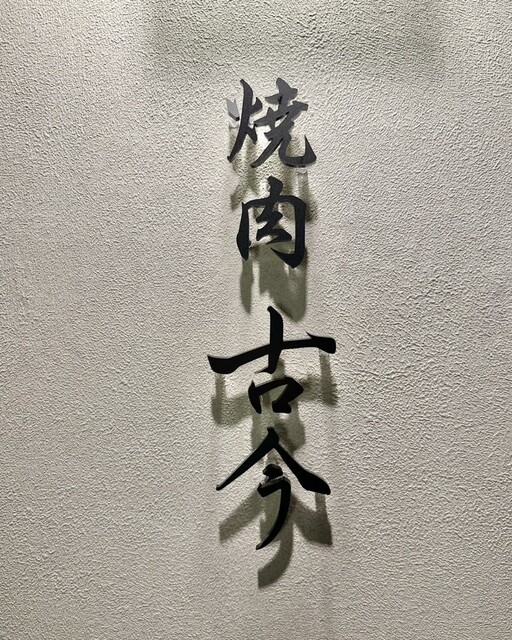 焼肉 古今